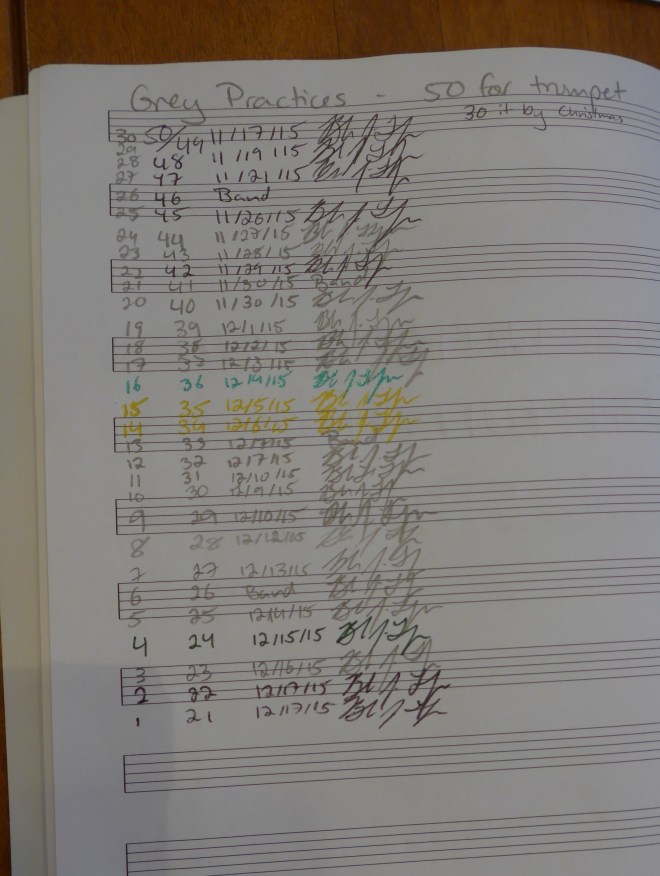 Grey Practices - 50 for trumpet
30 it by Christmas
30 50/49 11/17/15
29
28 48 11/19/15
27 47 11/21/15
26 46 Band
25 45 11/26/15
24 44 11/27/15
23 43 11/28/15
22 42 11/29/15
21 41 11/30/15 Band
20 40 11/30/15
19 39 12/1/15
18 38 12/2/15
17 37 12/3/15
16 36 12/4/15
15 35 12/5/15
14 34 12/6/15
13 33 12/7/15 Band
12 32 12/7/15
11 31 12/10/15
10 30 12/9/15
9 29 12/10/15
8 28 12/12/15
7 27 12/13/15
6 26 Band
5 25 12/14/15
4 24 12/15/15
3 23 12/16/15
2 22 12/17/15
1 21 12/17/15